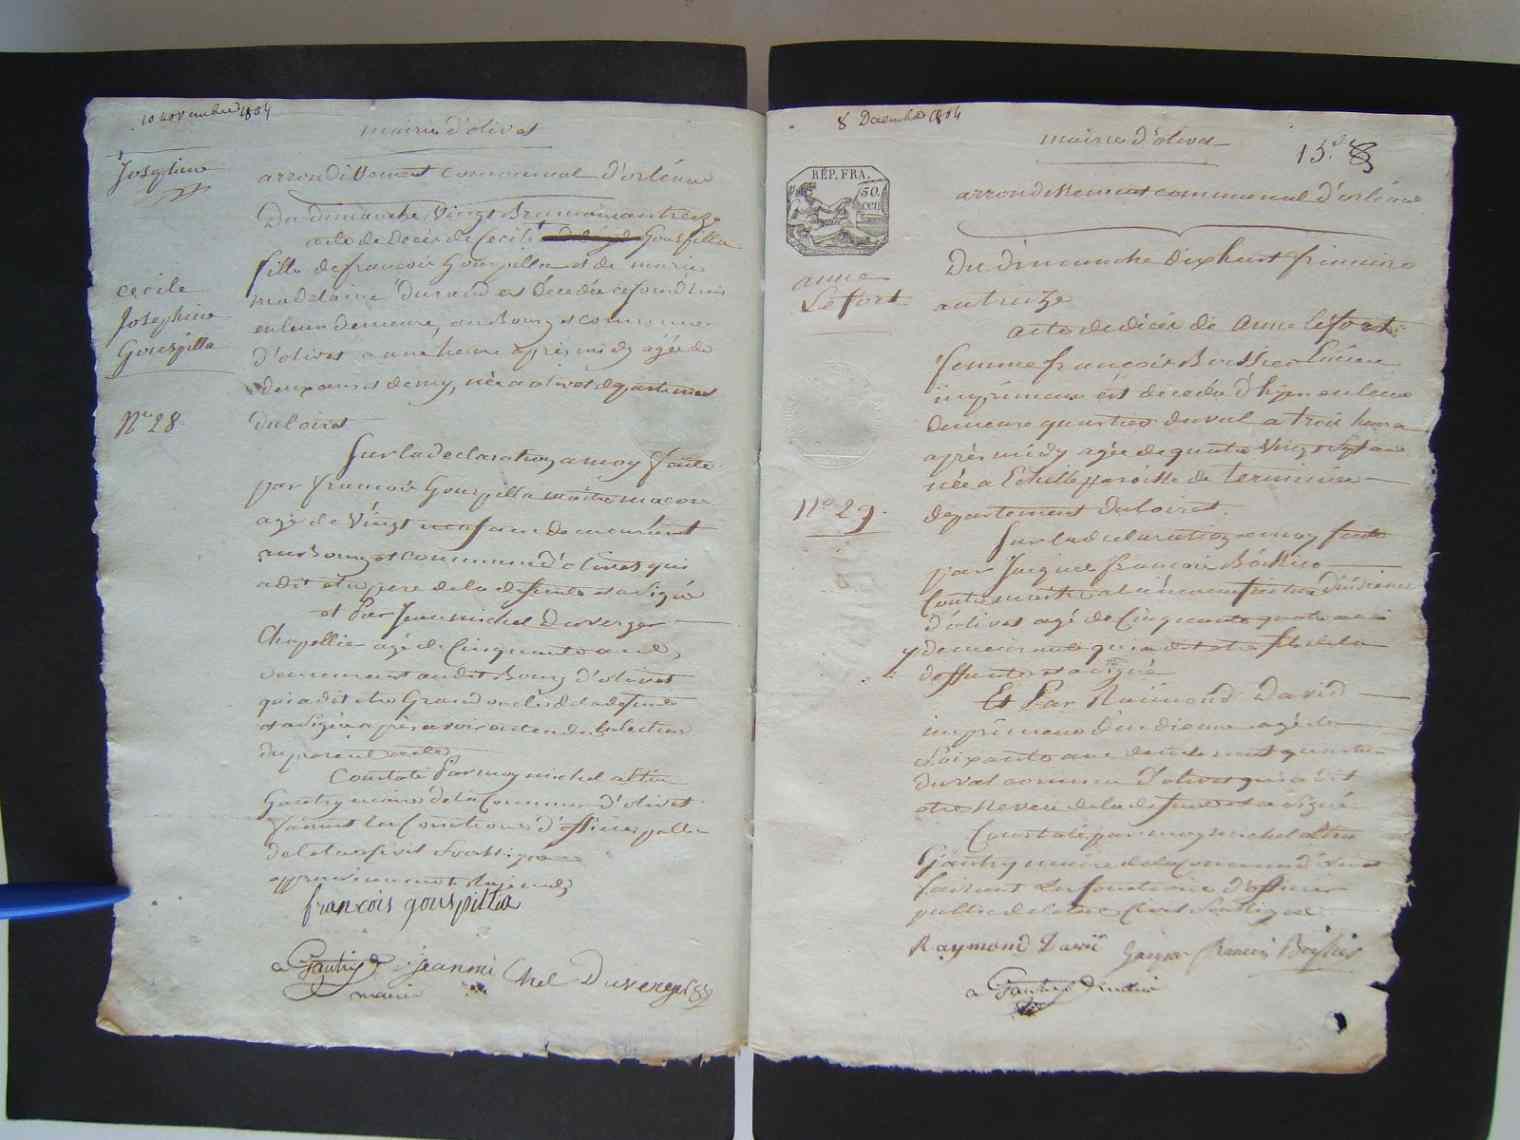 10 novembre 1804
mairie d'olivet
Josephine
arrondissement communal d'orléans
Du dimanche Vingt Brumaire an treize
acte de Deces de Cecile Gouspilla
fille de francois Gouspilla et de marie
madelaine durand est decedée cejourdhui
en leur demeure, au Bourg et commune
d'olivet a une heure après midy agée de
deux ans et demy, née a olivet departement
du loiret
cecile
Josephine
Gouspilla
No 28
Sur la declaration a moy faite
par francois Gouspilla maitre macon
agé de Vingt neuf ans demeurant
au Bourg et commune d'olivet qui
a dit etre pere de la defunte et a signé
et Par Jean michel Duverger
Chapellier agé de Cinquante ans
demeurant au dit Bourg d'olivet
qui a dit etre Grand oncle de la defunte
et a signé après avoir entendu la lecture
du present acte
Constaté Par moy michel
Gautry maire de la Commune d'olivet
faisant les fonctions d'officier public
de l'etat civil Soussigné
francois gouspilla
Gautry
maire
jean mi chel Duverger
8 Decembre 1804
mairie d'olivet
15. 8
RÉP. FRA.
50.
cen
arrondissement communal d'orléans
Du dimanche dix huit frimaire
an treize
anne
Lefort
acte de décés de anne Lefort
femme francois Boissier
imprimeur est decedée d'hyer en leur
demeure quartier du val a trois heures
après midy agée de quatre Vingt Sept ans
née a Echelle paroisse de terminiers
departement du loiret.
No 29.
Sur la declaration a moy faite
par Jacques francois Boissier
d'olivet agé de Cinquante quatre ans
y demeurant qui a dit etre fils de la
deffunte et a signé
Et Par Raimond David
imprimeur en indienne agé de
Soixante ans demeurant quartier
du val commune d'olivet qui a dit
etre neveu de la defunte et a signé
Constaté par moy michel
Gautry maire de la Commune d'olivet
faisant les fonctions d'officier
public de l'etat Civil Soussigné
Raymond David
francois Boissier
Gautry